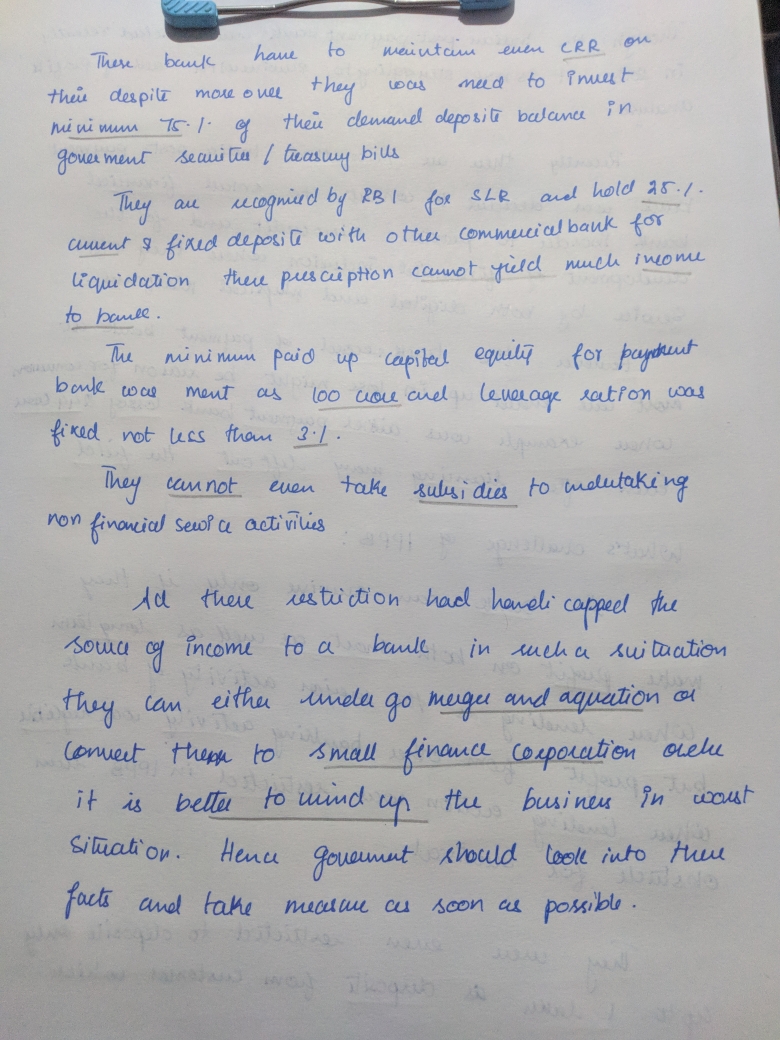 These bank have to maintain even CRR on
their despite more over they was need to invest
minimum 75% of their demand deposite balance in
goverment securities / treasury bills
They are recognised by RBI for SLR and hold 25%.
current & fixed deposite with other commercial bank for
liquidation these prescription cannot yield much income
to bank.
The minimum paid up capital equity for payment
bank was ment as 100 crore and leverage ration was
fixed not less than 3%.
They cannot even take subsidies to undutaking
non financial service activities
All these restriction had handicapped the
source of income to a bank in such a suituation
they can either under go merger and aquation or
convert them to small finance corporation orelse
it is better to mind up the business in worst
situation. Hence goverment should look into there
facts and take measure as soon as possible.